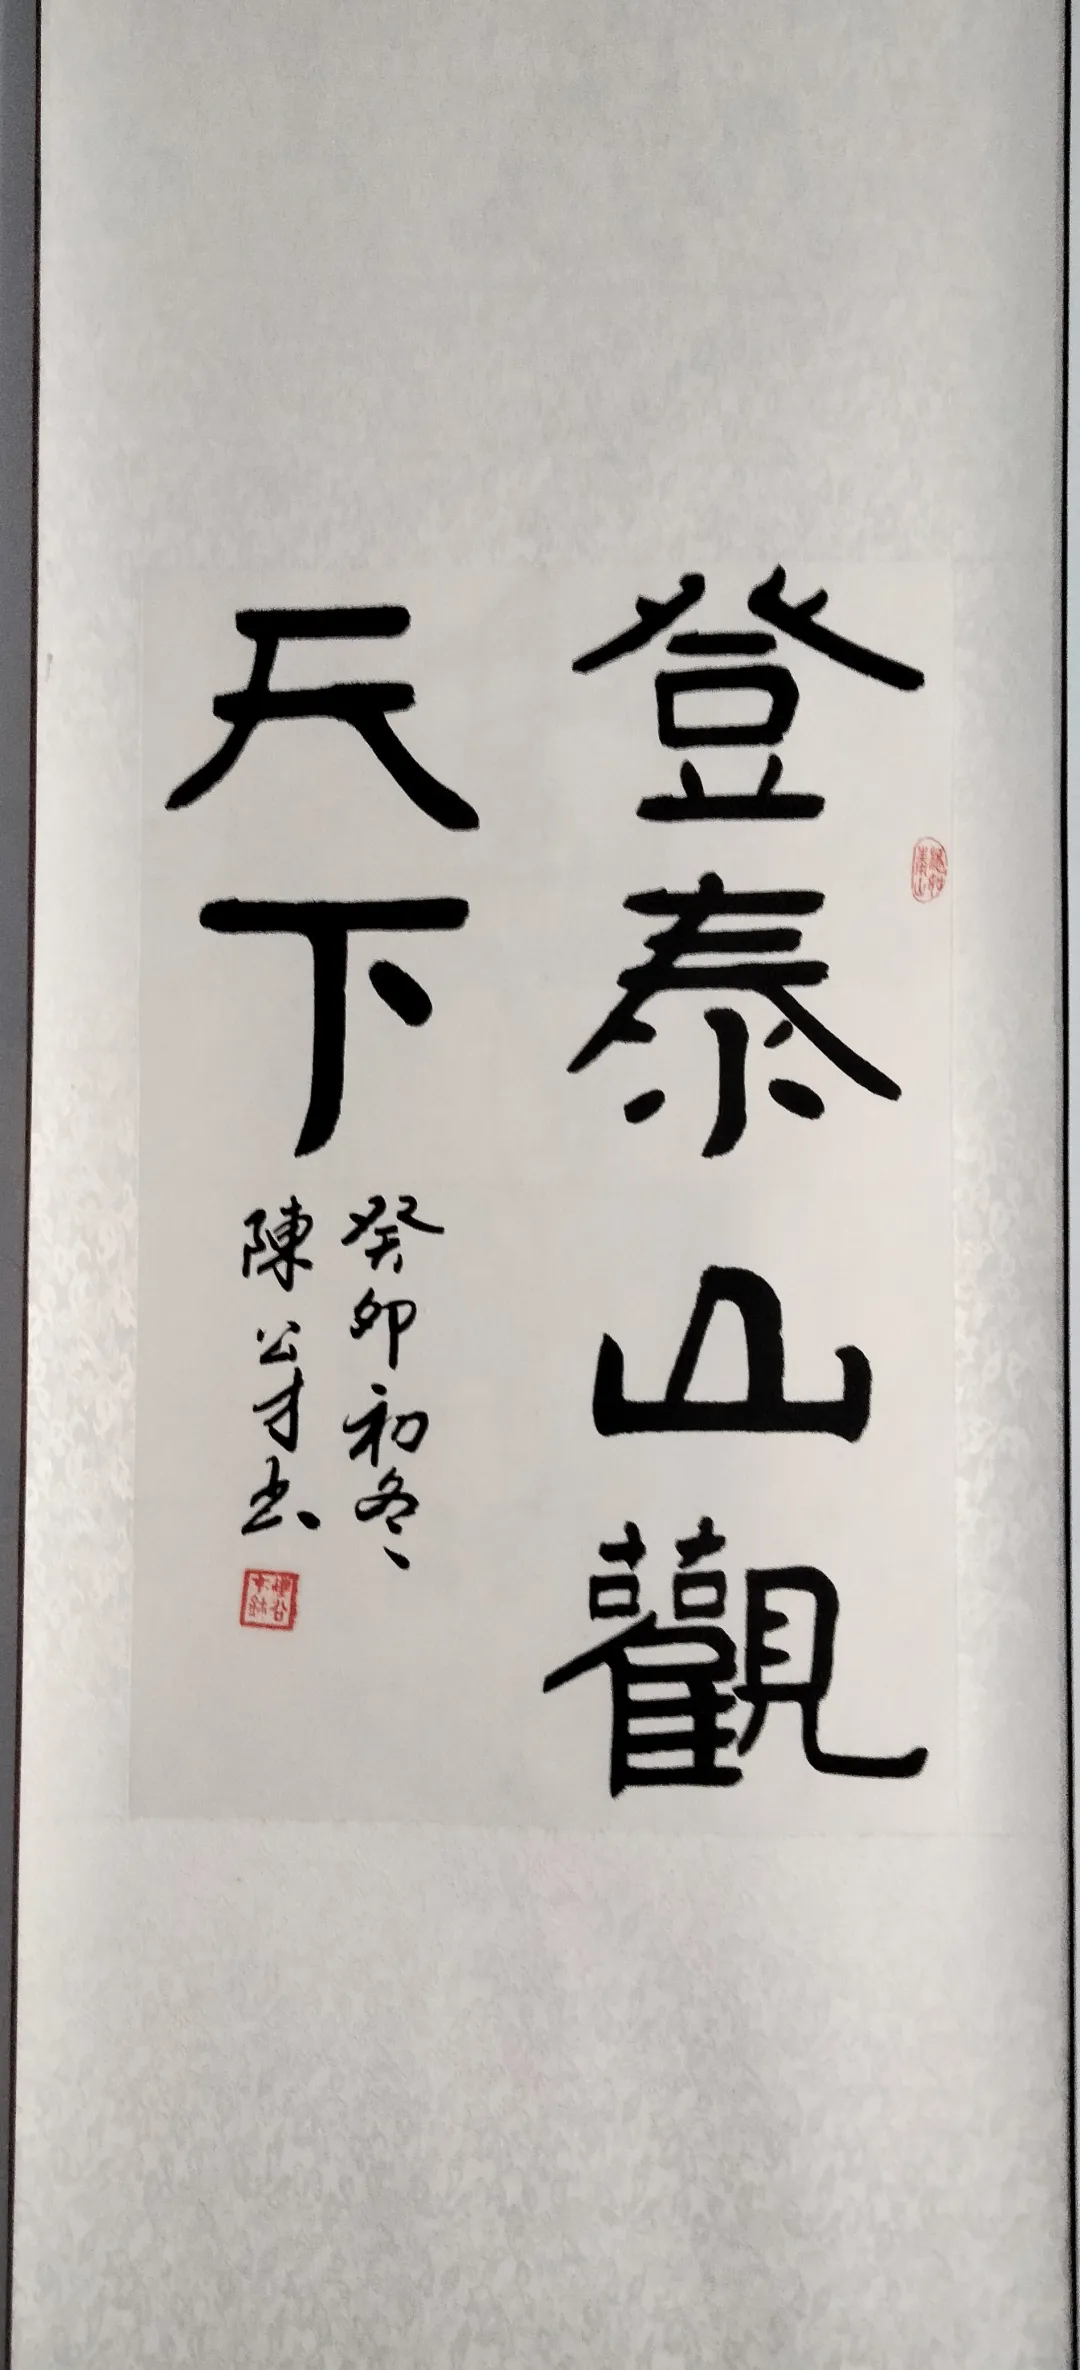 登泰山觀
天下
癸卯初冬
陳公才书